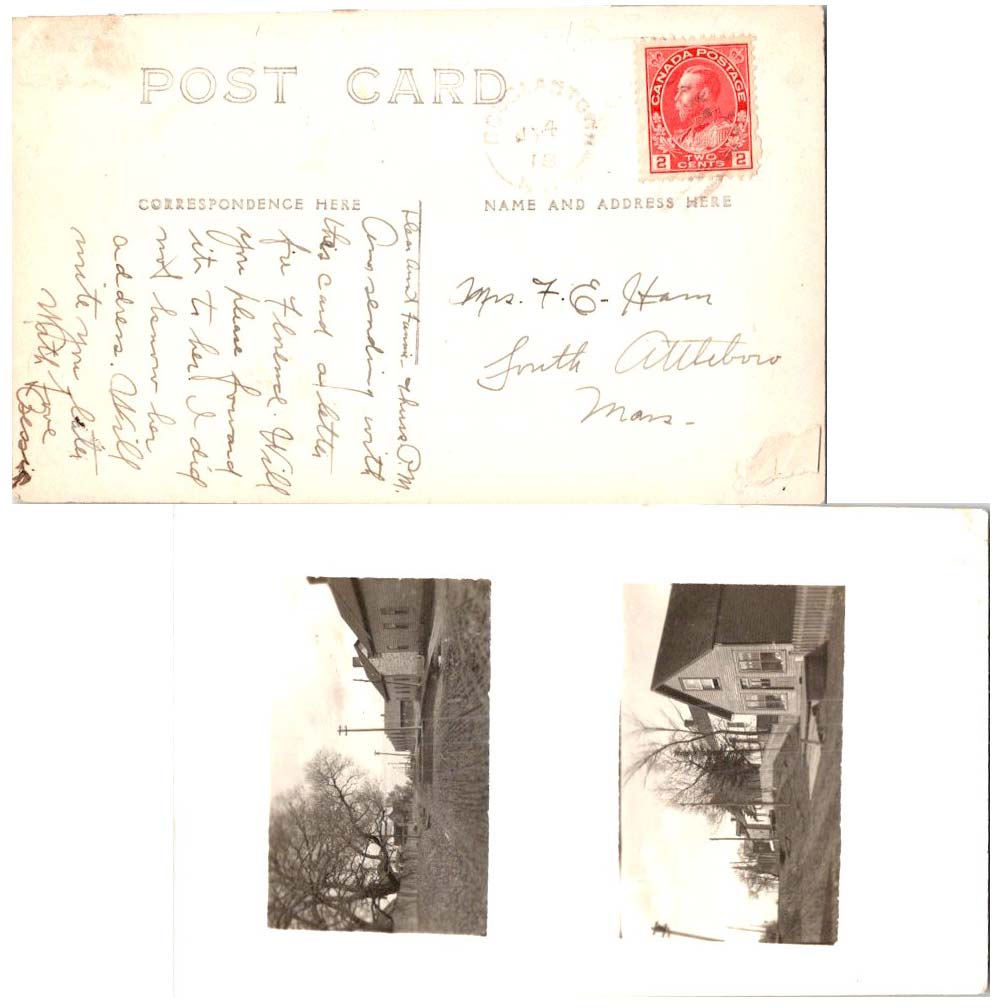 POST CARD
DOUGLASTOWN
JY 4
18
N.B.
CANADA POSTAGE
2 TWO CENTS 2
CORRESPONDENCE HERE
NAME AND ADDRESS HERE
Dear Aunt Fannie - Thurs P.M.
Am sending with
this card a letter
for Florence. Will
you please forward
it to her. I did
not know her
address. Will
write you later
With love
Bessie
Mrs. F. E. Ham
South Attleboro
Mass.